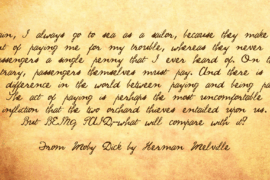 ain, I always go to sea as a sailor, because they make
nt of paying me for my trouble, whereas they never
assengers a single penny that I ever heard of. On the
trary, passengers themselves must pay. And there is
difference in the world between paying and being pa
The act of paying is perhaps the most uncomfortable
infliction that the two orchard thieves entailed upon us.
But BEING PAID-what will compare with it?
From Moby Dick by Herman Melville